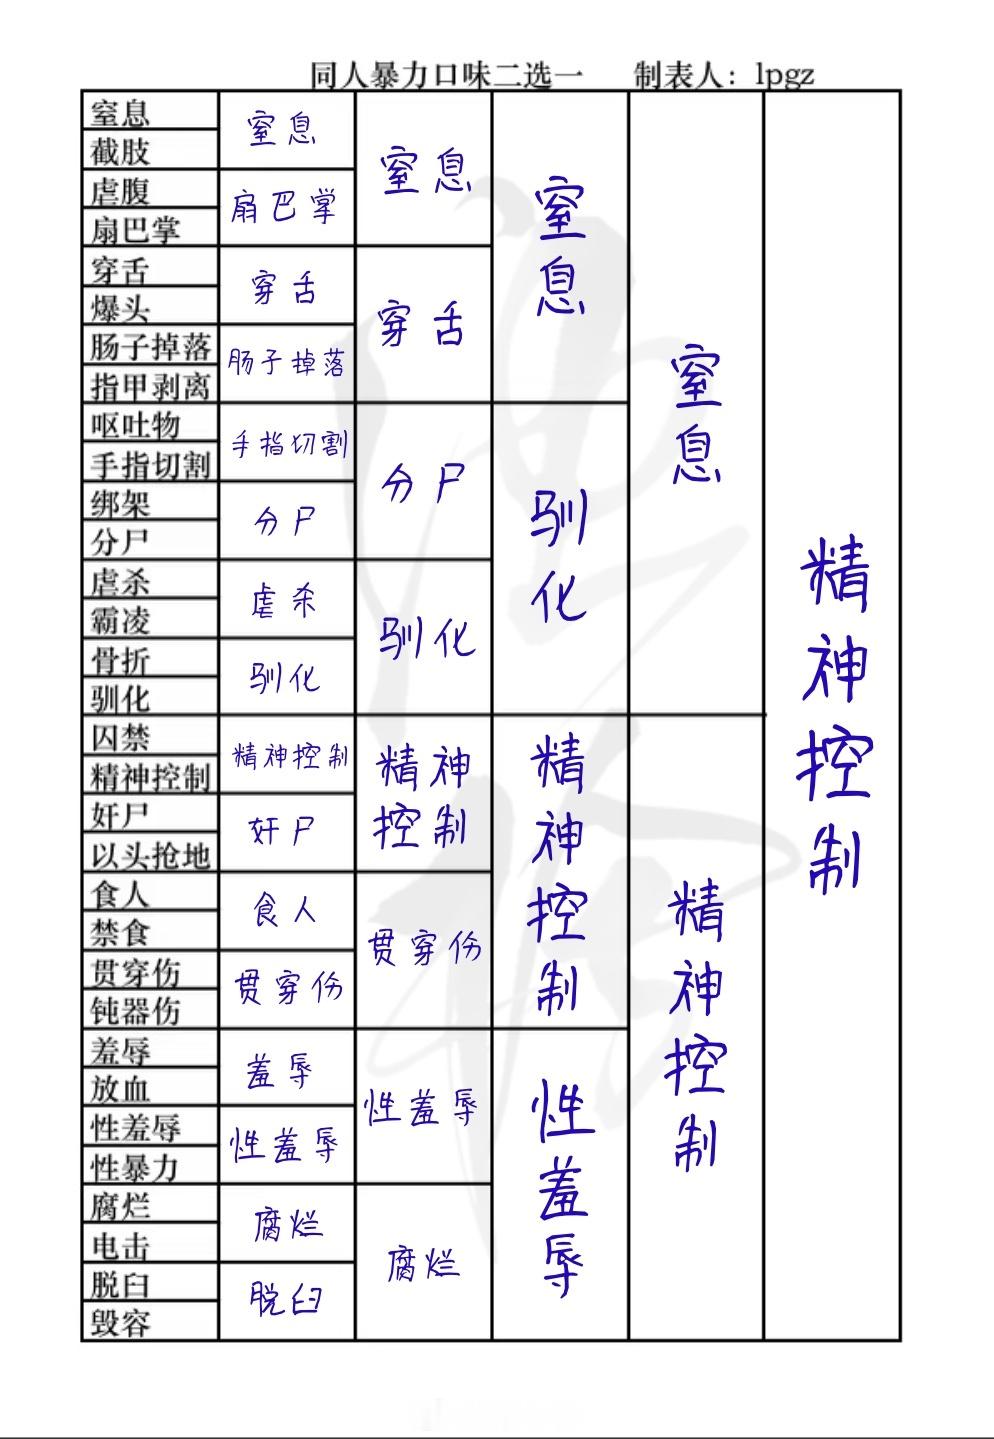 同人暴力口味二选一 制表人：lpgz
窒息
截肢
虐腹
扇巴掌
穿舌
爆头
肠子掉落
指甲剥离
呕吐物
手指切割
绑架
分尸
虐杀
霸凌
骨折
驯化
囚禁
精神控制
奸尸
以头抢地
食人
禁食
贯穿伤
钝器伤
羞辱
放血
性羞辱
性暴力
腐烂
电击
脱臼
毁容
窒息
扇巴掌
穿舌
肠子掉落
手指切割
分尸
虐杀
驯化
精神控制
奸尸
食人
贯穿伤
羞辱
性羞辱
腐烂
脱臼
窒息
穿舌
分尸
驯化
精神
控制
贯穿伤
性羞辱
腐烂
窒息
驯化
精神控制
性羞辱
窒息
精神控制
精神控制